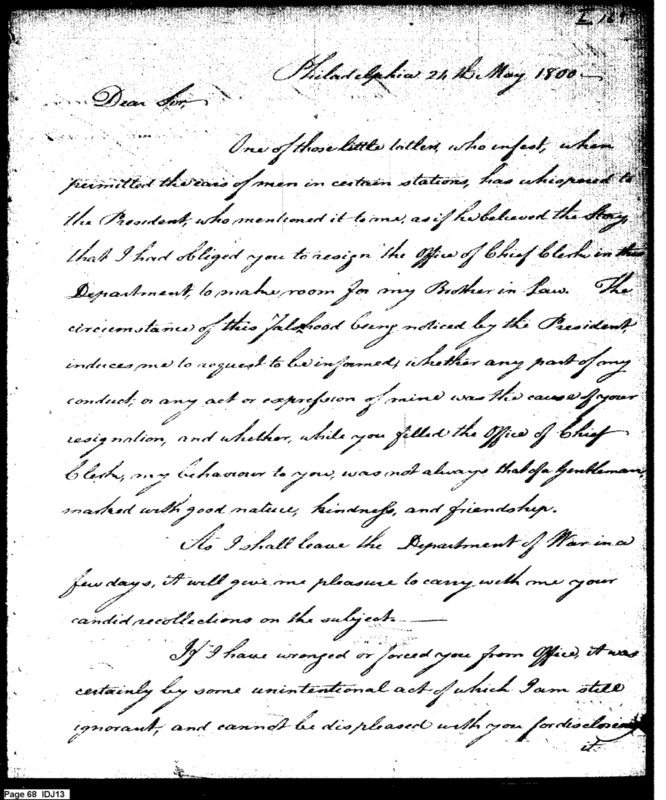 Philadelphia 24th May 1800
Dear Sir,
One of those little tatlers, who infest, when
permitted the ears of men in certain stations, has whispered to
the President, who mentioned it to me, as if he believed the Story,
that I had obliged you to resign the Office of Chief Clerk in this
Department, to make room for my Brother in Law. The
circumstance of this Falshood being noticed by the President,
induces me to request to be informed, whether any part of my
conduct, or any act or expression of mine was the cause of your
resignation, and whether, while you filled the Office of Chief
Clerk, my behaviour to you, was not always that of a Gentleman,
marked with good nature, kindness, and friendship.
As I shall leave the Department of War in a
few days, it will give me pleasure to carry with me your
candid recollections on the subject.
If I have wronged or forced you from Office, it was
certainly by some unintentional act of which I am still
ignorant, and cannot be displeased with you for disclosing
it.
Page 68 IDJ13